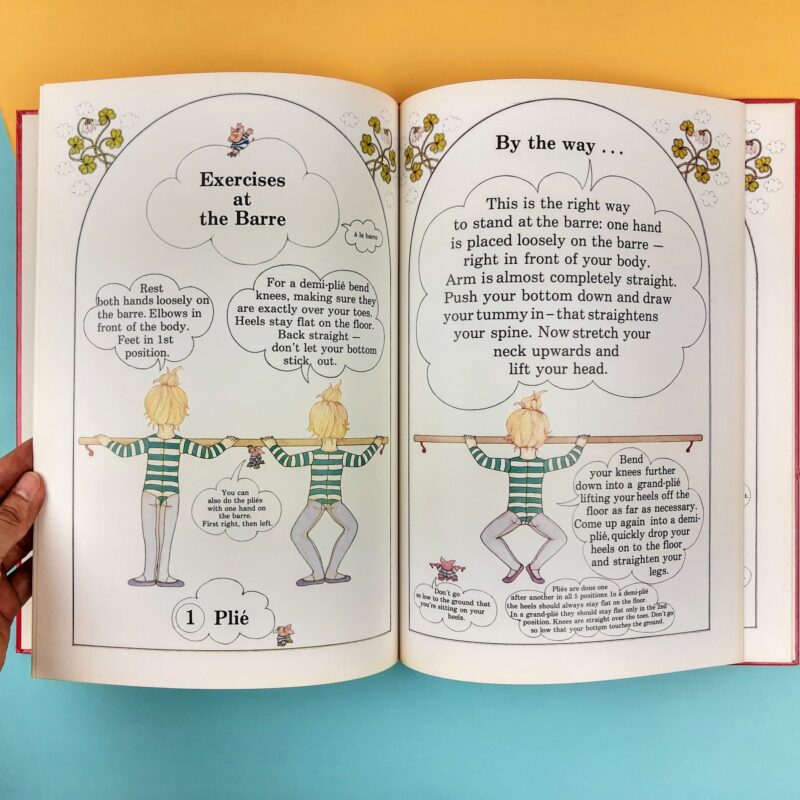 Exercises
at
the Barre
à la barre
Rest
both hands loosely on
the barre. Elbows in
front of the body.
Feet in 1st
position.
For a demi-plié bend
knees, making sure they
are exactly over your toes.
Heels stay flat on the floor.
Back straight –
don't let your bottom
stick out.
You can
also do the pliés
with one hand on
the barre.
First right, then left.
1 Plié
By the way ...
This is the right way
to stand at the barre: one hand
is placed loosely on the barre –
right in front of your body.
Arm is almost completely straight.
Push your bottom down and draw
your tummy in – that straightens
your spine. Now stretch your
neck upwards and
lift your head.
Bend
your knees further
down into a grand-plié
lifting your heels off the
floor as far as necessary.
Come up again into a demi-
plié, quickly drop your
heels on to the floor
and straighten your
legs.
Don't go
so low to the ground that
you're sitting on your
heels.
Pliés are done one
after another in all 5 positions. In a demi-plié
the heels should always stay flat on the floor.
In a grand-plié they should stay flat only in the 2nd
position. Knees are straight over the toes. Don't go
so low that your bottom touches the ground.